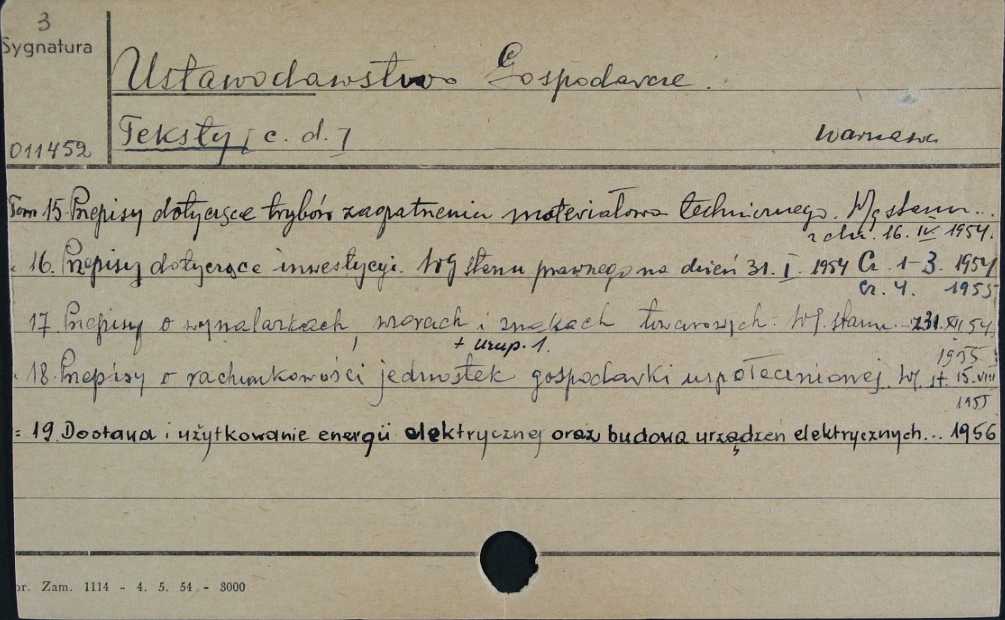 3
Sygnatura
Ustawodawstwo Gospodarcze.
Teksty [c. d.]
Warszawa
011452
Tom 15. Przepisy dotyczące trybów zaopatrzenia materiałowo technicznego. Wg stanu...
z dn. 16. IV 1954.
" 16. Przepisy dotyczące inwestycji. Wg stanu prawnego na dzień 31. I. 1954 Cz. 1-3. 1954
Cz. 4. 1955
17. Przepisy o wynalazkach, wzorach i znakach towarowych. Wg. stanu... z 31. XII 54.
+ uzup. 1.
1955
" 18. Przepisy o rachunkowości jednostek gospodarki uspołecznionej. Wg. st. 15. VIII
1955
= 19. Dostawa i użytkowanie energii elektrycznej oraz budowa urządzeń elektrycznych... 1956
or. Zam. 1114 - 4. 5. 54 - 3000